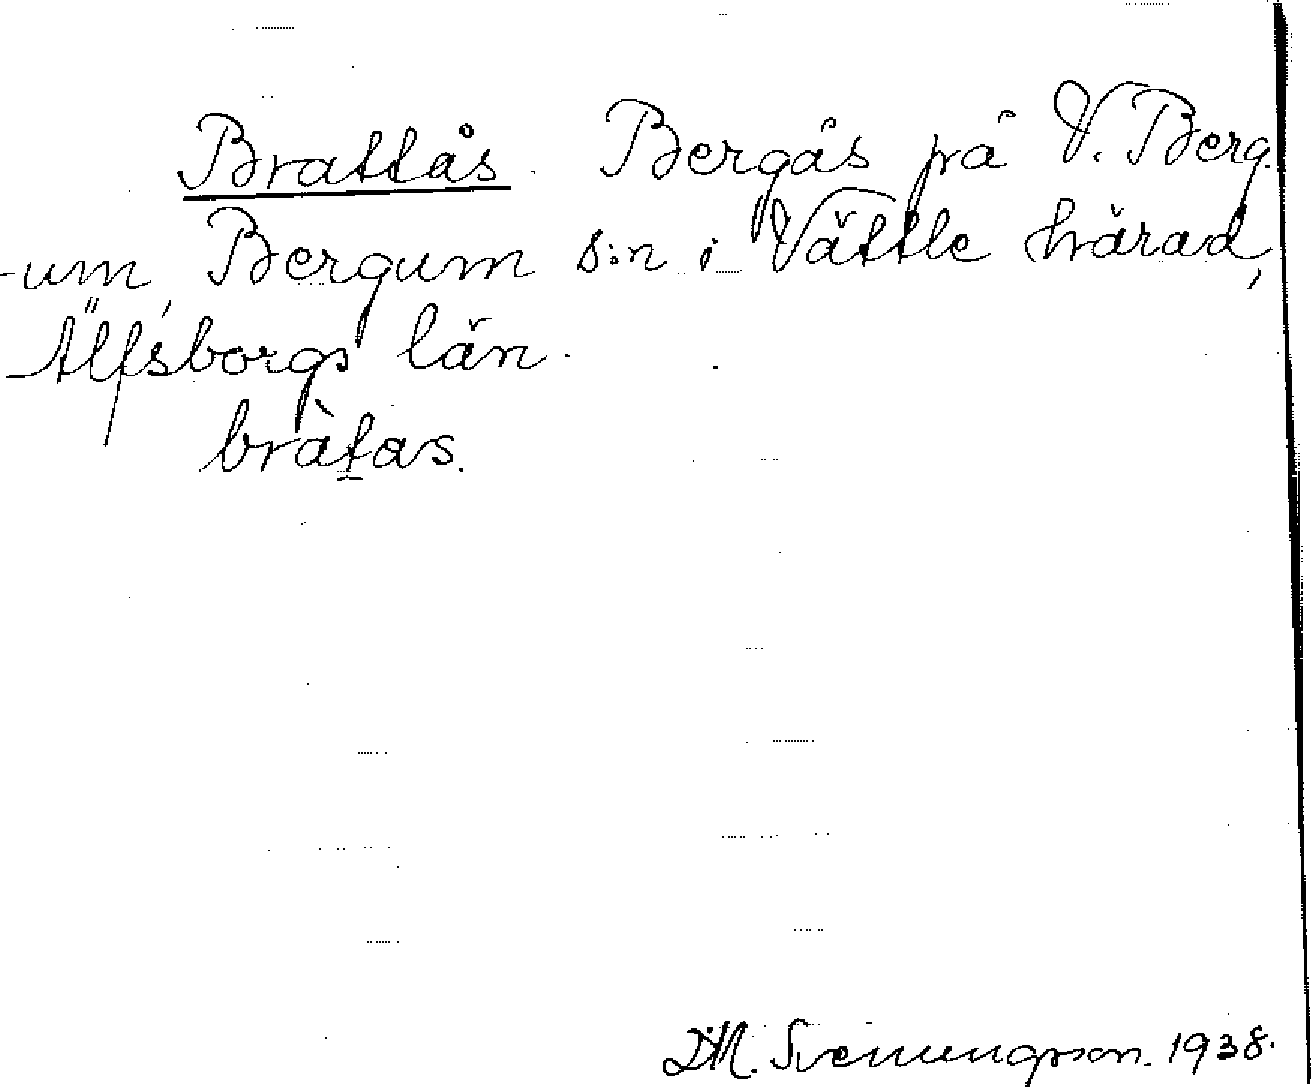 Brattås. Bergås på V. Berg-
-um, Bergum s:n i Vättle härad,
Älfsborgs län.
bràtas.
D.M. Svenungsson. 1938.